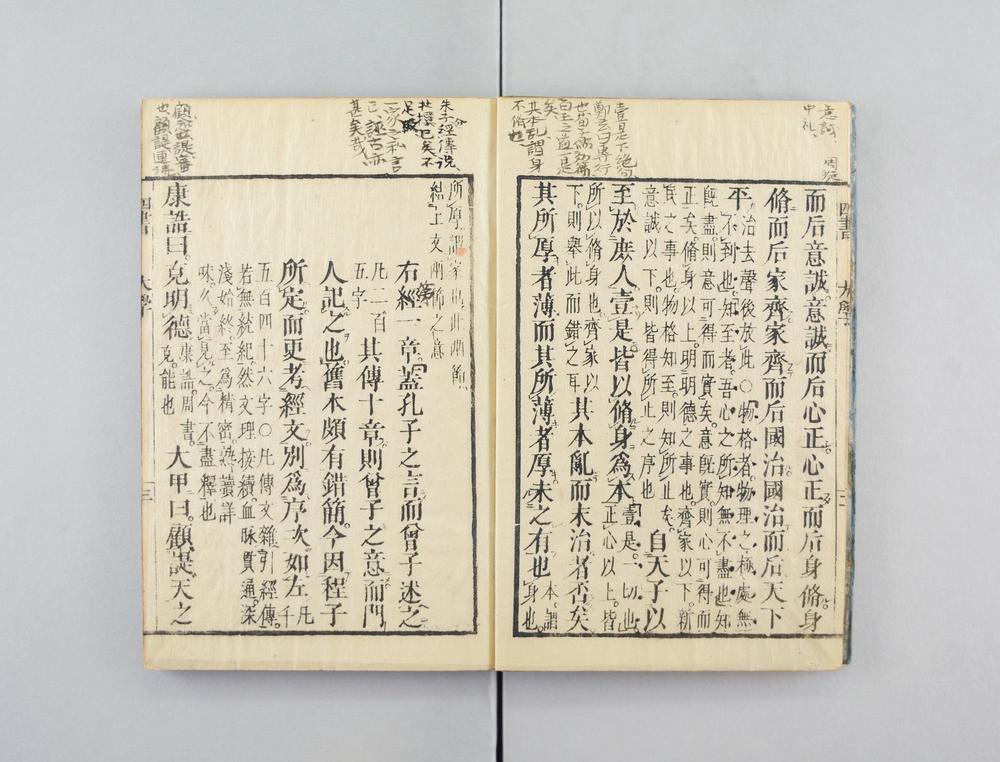 而后意誠。意誠而后心正。心正而后身脩。身
脩而后家齊。家齊而后國治。國治而后天下
平。
治去聲後放此○物格者物理之極處無
不到也。知至者。吾心之所知無不盡也。知
既盡。則意可得而實矣。意既實。則心可得而
正矣。脩身以上。明明德之事也。齊家以下。新
民之事也。物格知至。則知所止矣。
意誠以下。則皆得所止之序也
自天子以
至於庶人壹是皆以脩身爲本。
壹是。一切也。
正心以上。皆
所以脩身也。齊家以
下。則舉此而錯之耳
其本亂而末治者否矣
其所厚者薄而其所薄者厚未之有也
本。謂
身也。
所厚謂家也此兩節
結上文兩節之意
右經一章。蓋孔子之言而曾子述之
凡二百
五字
其傳十章則曾子之意而門
人記之也舊本頗有錯簡今因程子
所定而更考經文別爲序次。如左
凡
千
五百四十六字○凡傳文雜引經傳。
若無統紀。然文理接續。血脉貫通。深
淺始終。至爲精密。熟讀詳
味。久當見之。今不盡釋也
康誥曰。克明德
康誥。周書。
克。能也
大甲曰。顧諟天之
四書
大學
三
朱子經傳説
杜撰已矣不
足取
一家之私言
已誣古亦
甚矣哉
壹是下絶句
其本亂謂身
不脩也
中礼